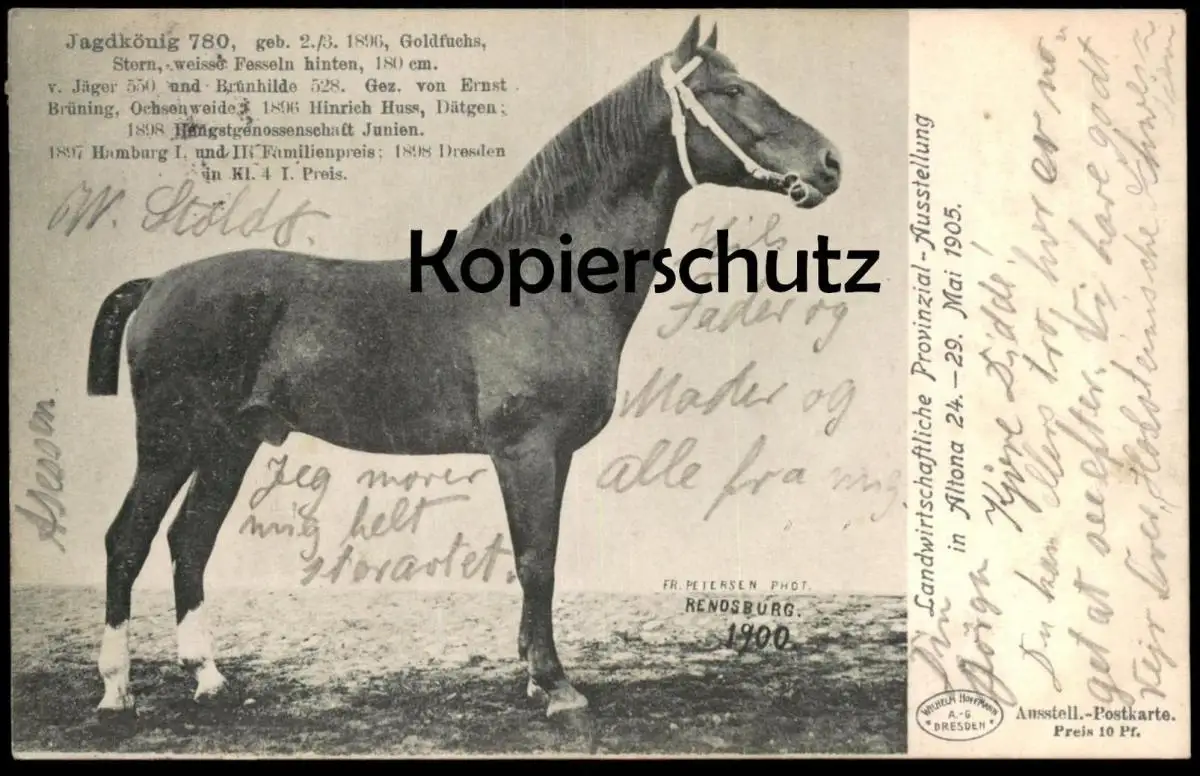 Jagdkönig 780, geb. 2./3. 1896, Goldfuchs,
Stern, weisse Fesseln hinten, 180 cm.
v. Jäger 550 und Brünhilde 528. Gez. von Ernst
Brüning, Ochsenweide; 1896 Hinrich Huss, Dätgen;
1898 Hengstgenossenschaft Junien.
1897 Hamburg I. und III. Familienpreis; 1898 Dresden
in Kl. 4 I. Preis.
W. Stoldt.
Kopierschutz
Hils
Fader og
Moder og
alle fra mig.
Jeg morer
mig helt
storartet.
FR. PETERSEN PHOT.
RENDSBURG.
1900.
Landwirtschaftliche Provinzial-Ausstellung
in Altona 24.–29. Mai 1905.
Kjære
Du kan tro her er no-
get at se efter. Vi have godt
Vejr Holsteinische Schweiz
Din
WILHELM HOFFMANN
A.-G
DRESDEN
Ausstell.-Postkarte.
Preis 10 Pf.